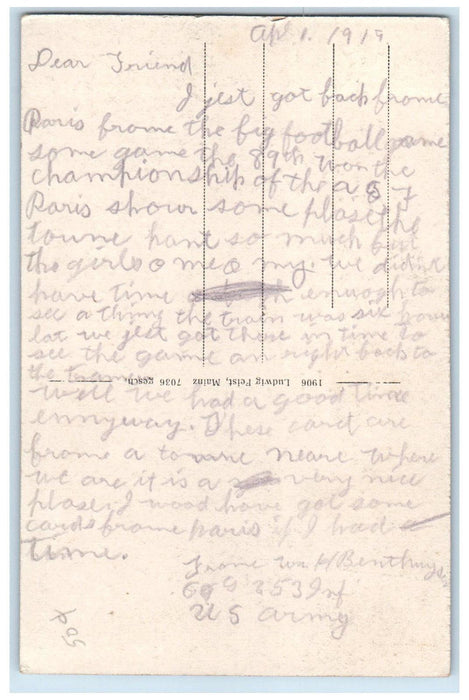 Apl 1. 1919
Dear Friend
I jest got back frome
Paris frome the big football game
some game the 89th won the
championship of the a E F
Paris shour some plase the
toune hant so much but
the girls o me o my. we didnt
have time enough to
see a thing the train was six hours
lat we jest got there in time to
see the game an right back to
the train
1906 Ludwig Feist, Mainz 7036 gesch.
Well we had a good time
ennyway. These card are
frome a toune neare where
we are it is a very nice
plase. I wood have got some
cards frome paris if I had
time.
Frome Wm H
Co G 353 Inf
U S army